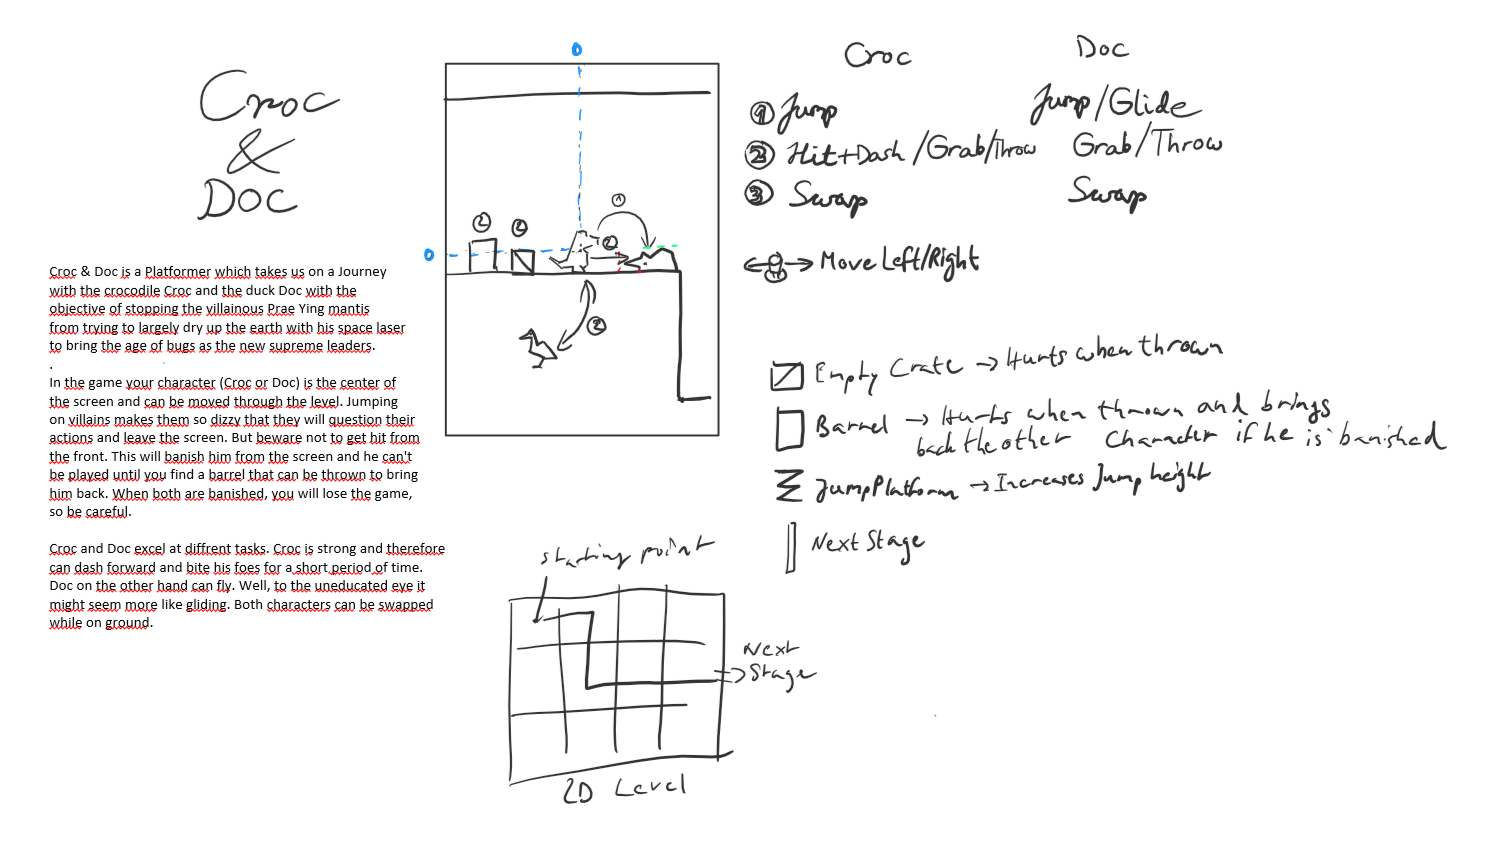 Croc
&
Doc
Croc & Doc is a Platformer which takes us on a Journey
with the crocodile Croc and the duck Doc with the
objective of stopping the villainous Prae Ying mantis
from trying to largely dry up the earth with his space laser
to bring the age of bugs as the new supreme leaders.
.
In the game your character (Croc or Doc) is the center of
the screen and can be moved through the level. Jumping
on villains makes them so dizzy that they will question their
actions and leave the screen. But beware not to get hit from
the front. This will banish him from the screen and he can't
be played until you find a barrel that can be thrown to bring
him back. When both are banished, you will lose the game,
so be careful.
Croc and Doc excel at diffrent tasks. Croc is strong and therefore
can dash forward and bite his foes for a short period of time.
Doc on the other hand can fly. Well, to the uneducated eye it
might seem more like gliding. Both characters can be swapped
while on ground.
0
0
2
2
1
2
2
Croc Doc
1 Jump Jump/Glide
2 Hit+Dash/Grab/Throw Grab/Throw
3 Swap Swap
Move Left/Right
Empty Crate → Hurts when thrown
Barrel → Hurts when thrown and brings
back the other Character if he is banished
Jump Platform → Increases Jump height
Next Stage
starting point
Next
Stage
2D Level